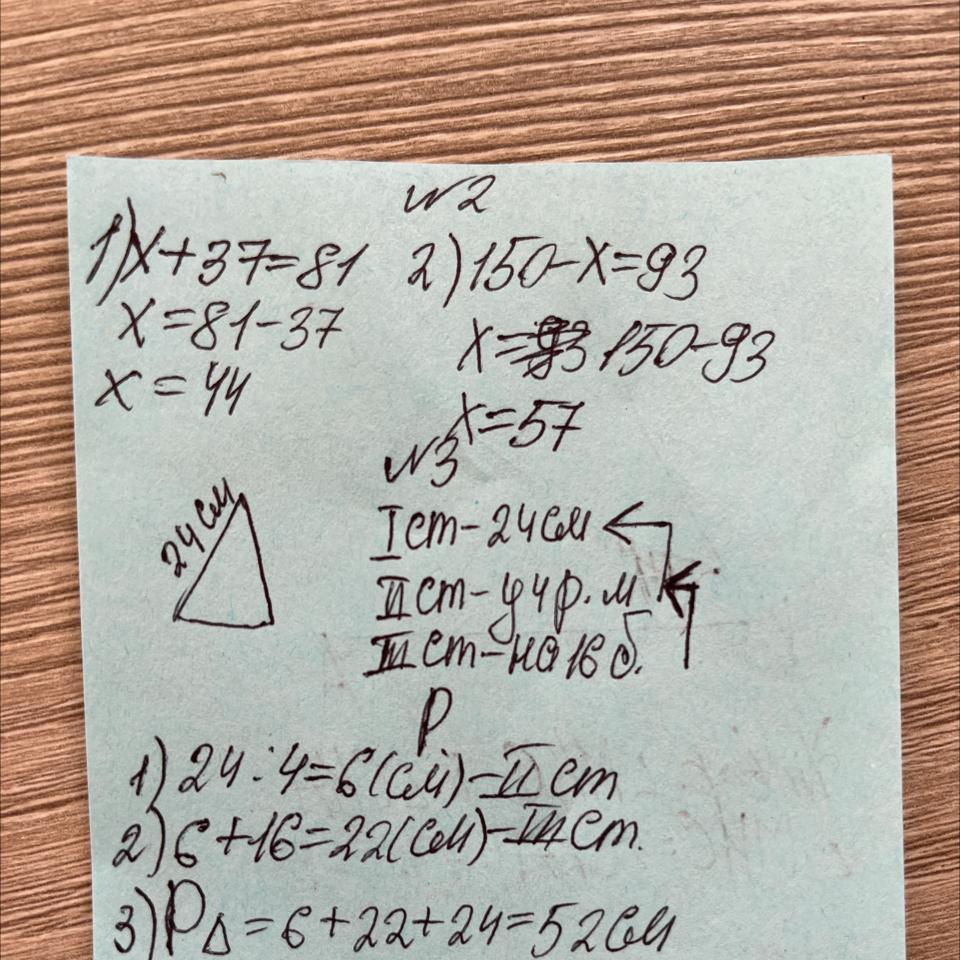 №2
1) x+37=81 2) 150-x=93
x=81-37 x=93 150-93
x=44 x=57
№3
24см
I ст-24см
II ст-у4р.м
III ст-на16б.
P
1) 24:4=6(см)-II ст
2) 6+16=22(см)-III ст.
3) P△=6+22+24=52см